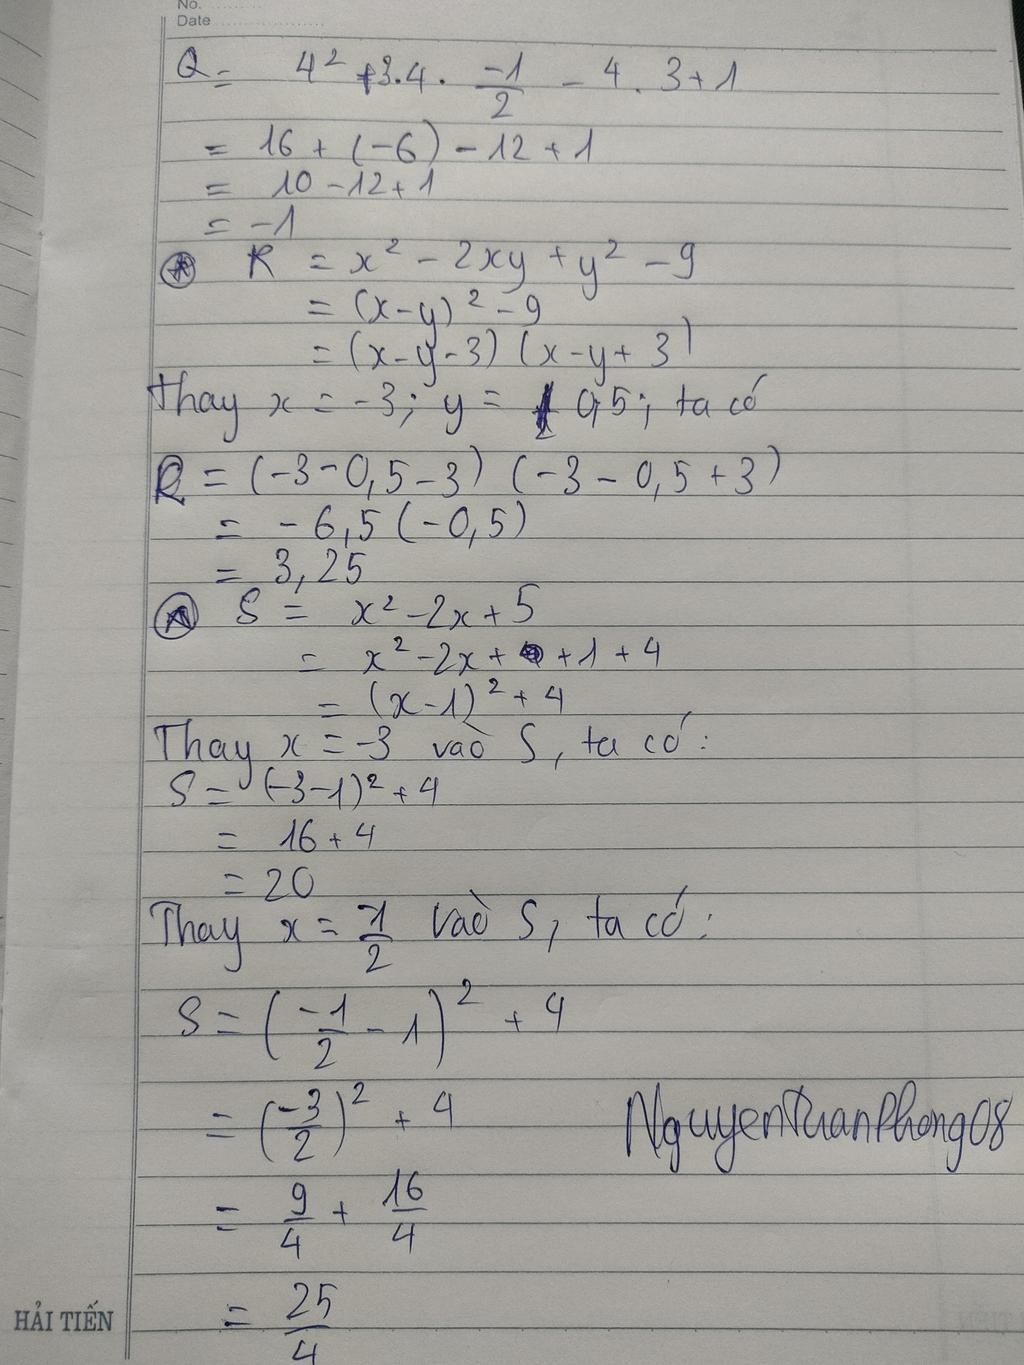 No.
Date
Q = 4² + 3.4 . \frac{-1}{2} - 4 . 3 + 1
= 16 + (-6) - 12 + 1
= 10 - 12 + 1
= -1
R = x² - 2xy + y² - 9
= (x-y)² - 9
= (x-y-3) (x-y+3)
Thay x = -3; y = 0,5; ta có
R = (-3-0,5-3) (-3-0,5+3)
= -6,5(-0,5)
= 3,25
S = x² - 2x + 5
= x² - 2x + + 1 + 4
= (x-1)² + 4
Thay x = -3 vào S, ta có:
S = (-3-1)² + 4
= 16 + 4
= 20
Thay x = \frac{-1}{2} vào S, ta có:
S = (\frac{-1}{2} - 1)² + 4
= (\frac{-3}{2})² + 4
NguyenTuanPhong08
= \frac{9}{4} + \frac{16}{4}
= \frac{25}{4}
HẢI TIẾN